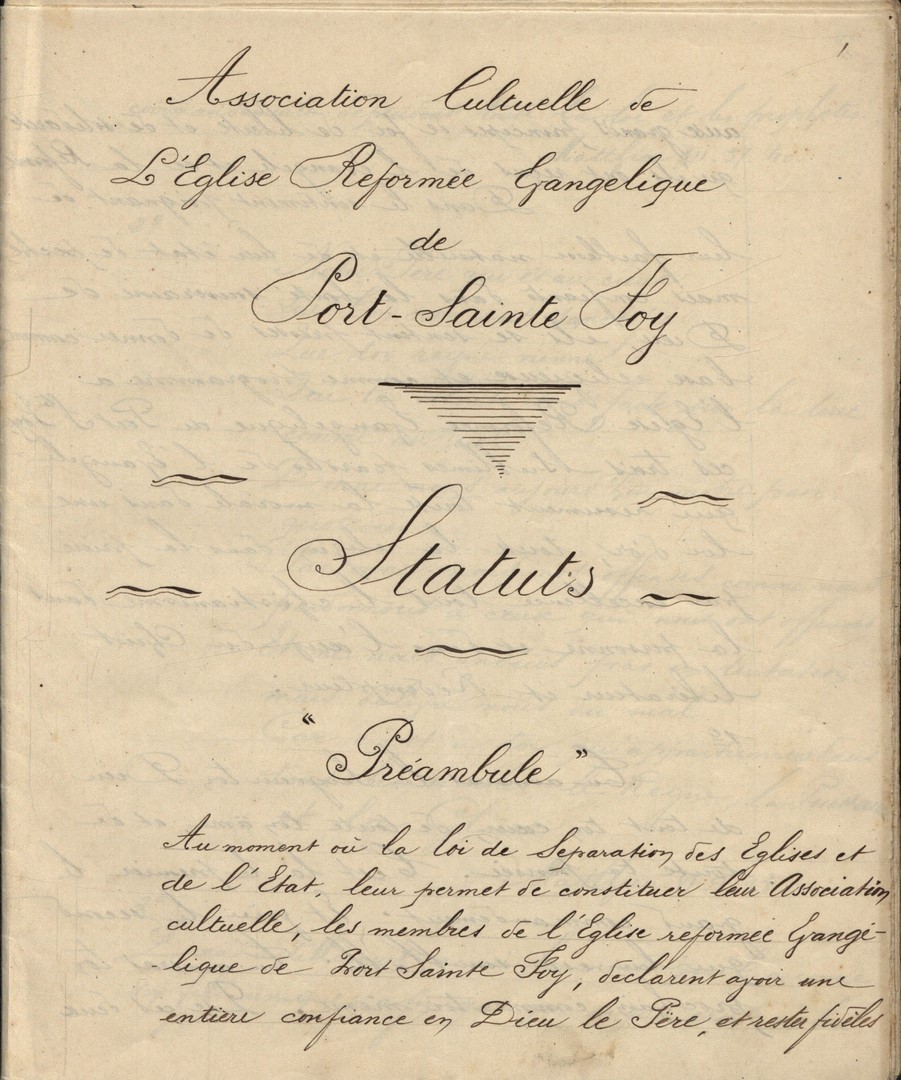 1
Association Cultuelle de
L'Eglise Reformée Evangelique
de
Port-Sainte Foy
Statuts
"Préambule"
Au moment où la loi de Séparation des Eglises et
de l'Etat, leur permet de constituer leur Association
cultuelle, les membres de l'Eglise reformée Evangé-
-lique de Port Sainte Foy, déclarent avoir une
entière confiance en Dieu le Père, et rester fidèles